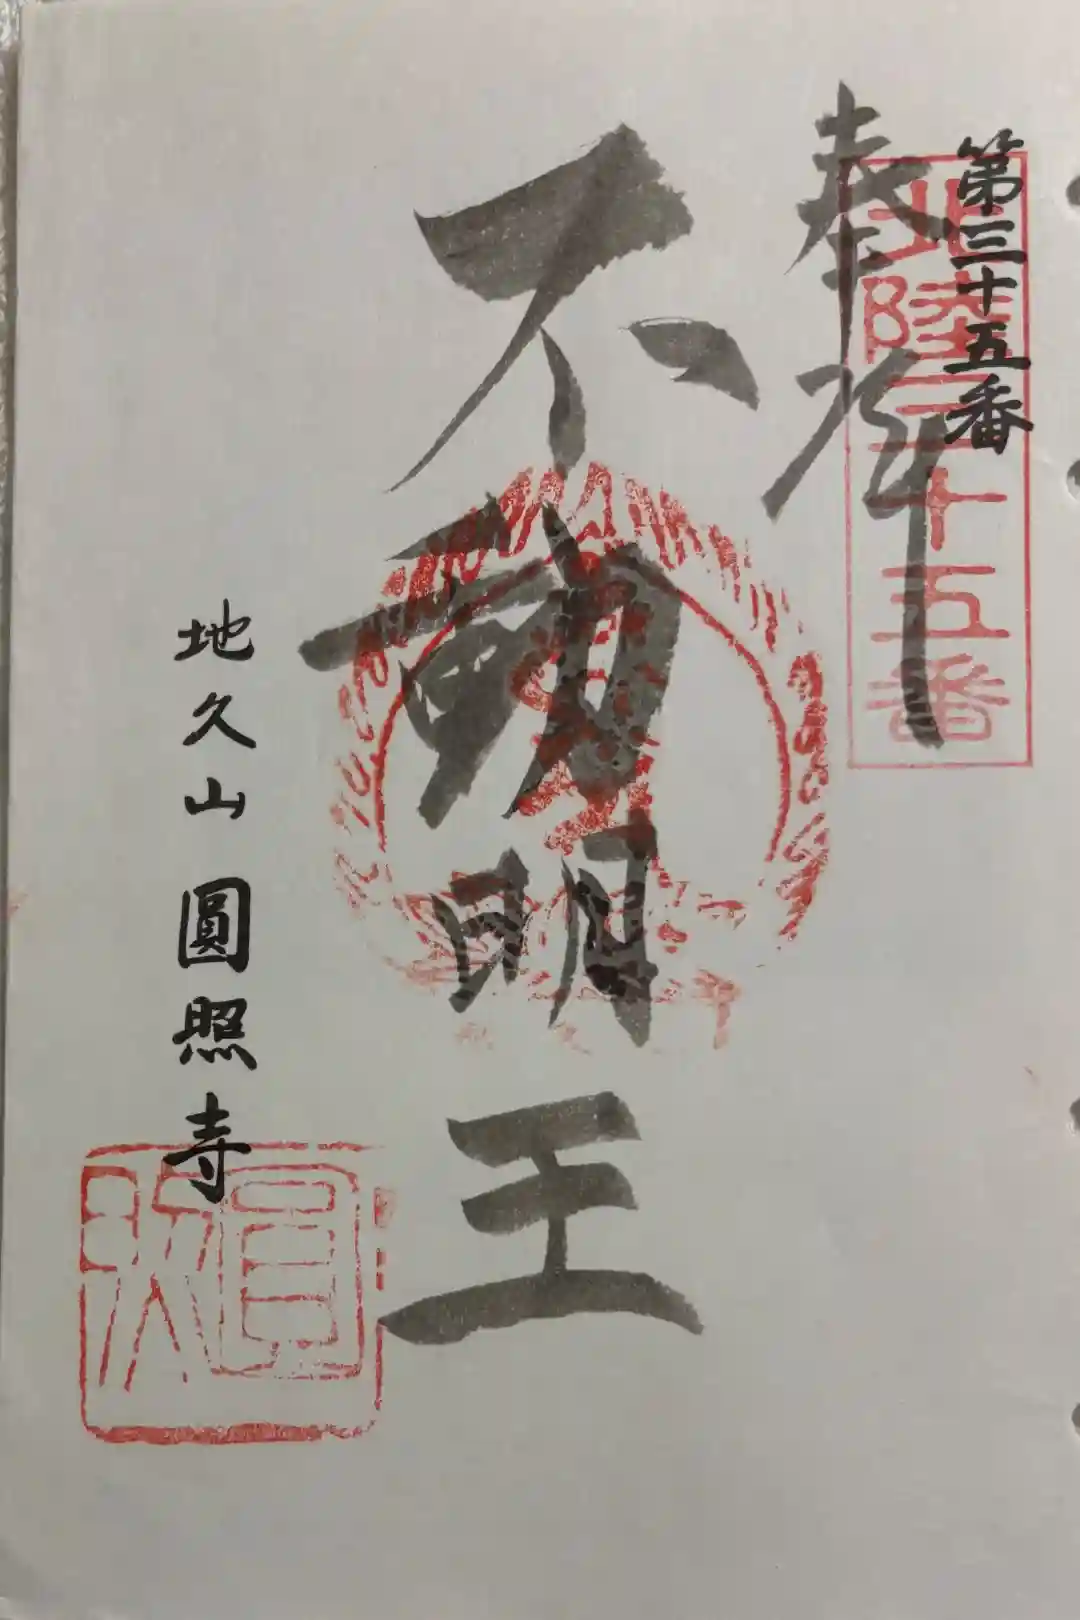 第三十五番
奉拝
北陸三十五番
不動明王
地久山 圓照寺